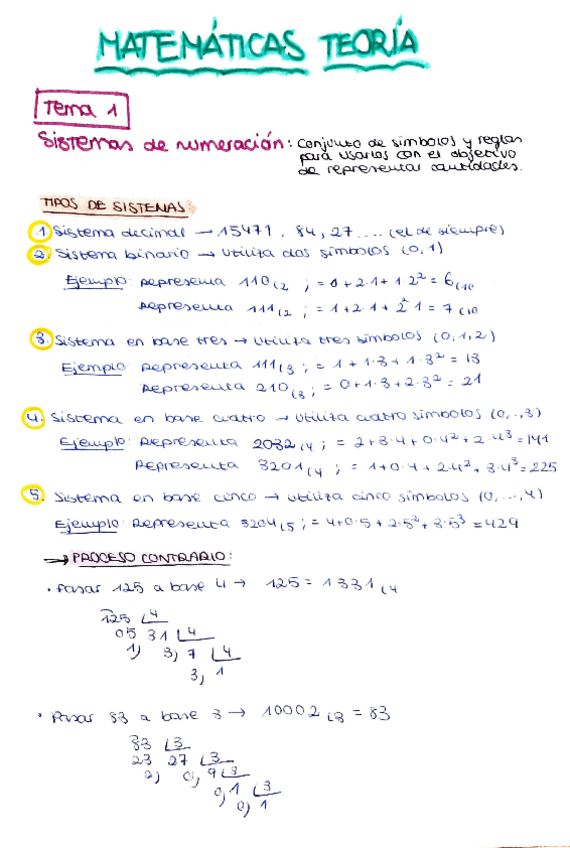 MATEMÁTICAS TEORÍA
Tema 1
Sistemas de numeración: Conjunto de símbolos y reglas
para usarlos con el objetivo
de representar cantidades.
TIPOS DE SISTEMAS
1. Sistema decimal → 15471, 84, 27 .... (el de siempre)
2. Sistema binario → Utiliza dos símbolos (0,1)
Ejemplo: Representa 110(2 ; = 0+2·1+1·2² = 6(10
Representa 111(2 ; = 1+2·1+2²·1 = 7(10
3. Sistema en base tres → Utiliza tres símbolos (0,1,2)
Ejemplo: Representa 111(3 ; = 1+1·3+1·3² = 13
Representa 210(3 ; = 0+1·3+2·3² = 21
4. Sistema en base cuatro → Utiliza cuatro símbolos (0,..,3)
Ejemplo: Representa 2032(4 ; = 2+3·4+0·4²+2·4³ = 141
Representa 3201(4 ; = 1+0·4+2·4²+3·4³ = 225
5. Sistema en base cinco → Utiliza cinco símbolos (0,...,4)
Ejemplo: Representa 3204(5 ; = 4+0·5+2·5²+3·5³ = 429
→ PROCESO CONTRARIO:
· Pasar 125 a base 4 → 125 = 1331(4
125 4
05 31 4
1) 3) 7 4
3) 1
· Pasar 83 a base 3 → 10002(3 = 83
83 3
23 27 3
2) 0) 9 3
0) 1 3
0) 1